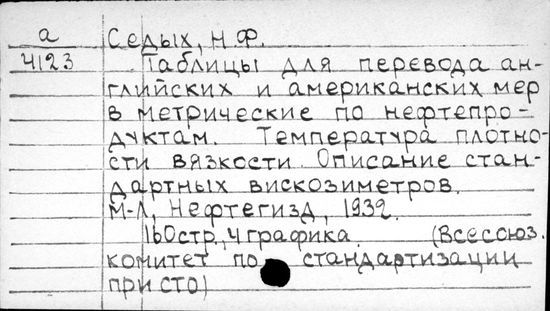 а
4123
Седых, Н.Ф.
Таблицы для перевода ан-
глийских и американских мер
в метрические по нефтепро-
дуктам. Температура плотно-
сти вязкости. Описание стан-
дартных вискозиметров.
М-Л, Нефтегизд, 1932.
160стр., 4 графика. (Всесоюз.
комитет по стандартизации
при сто)